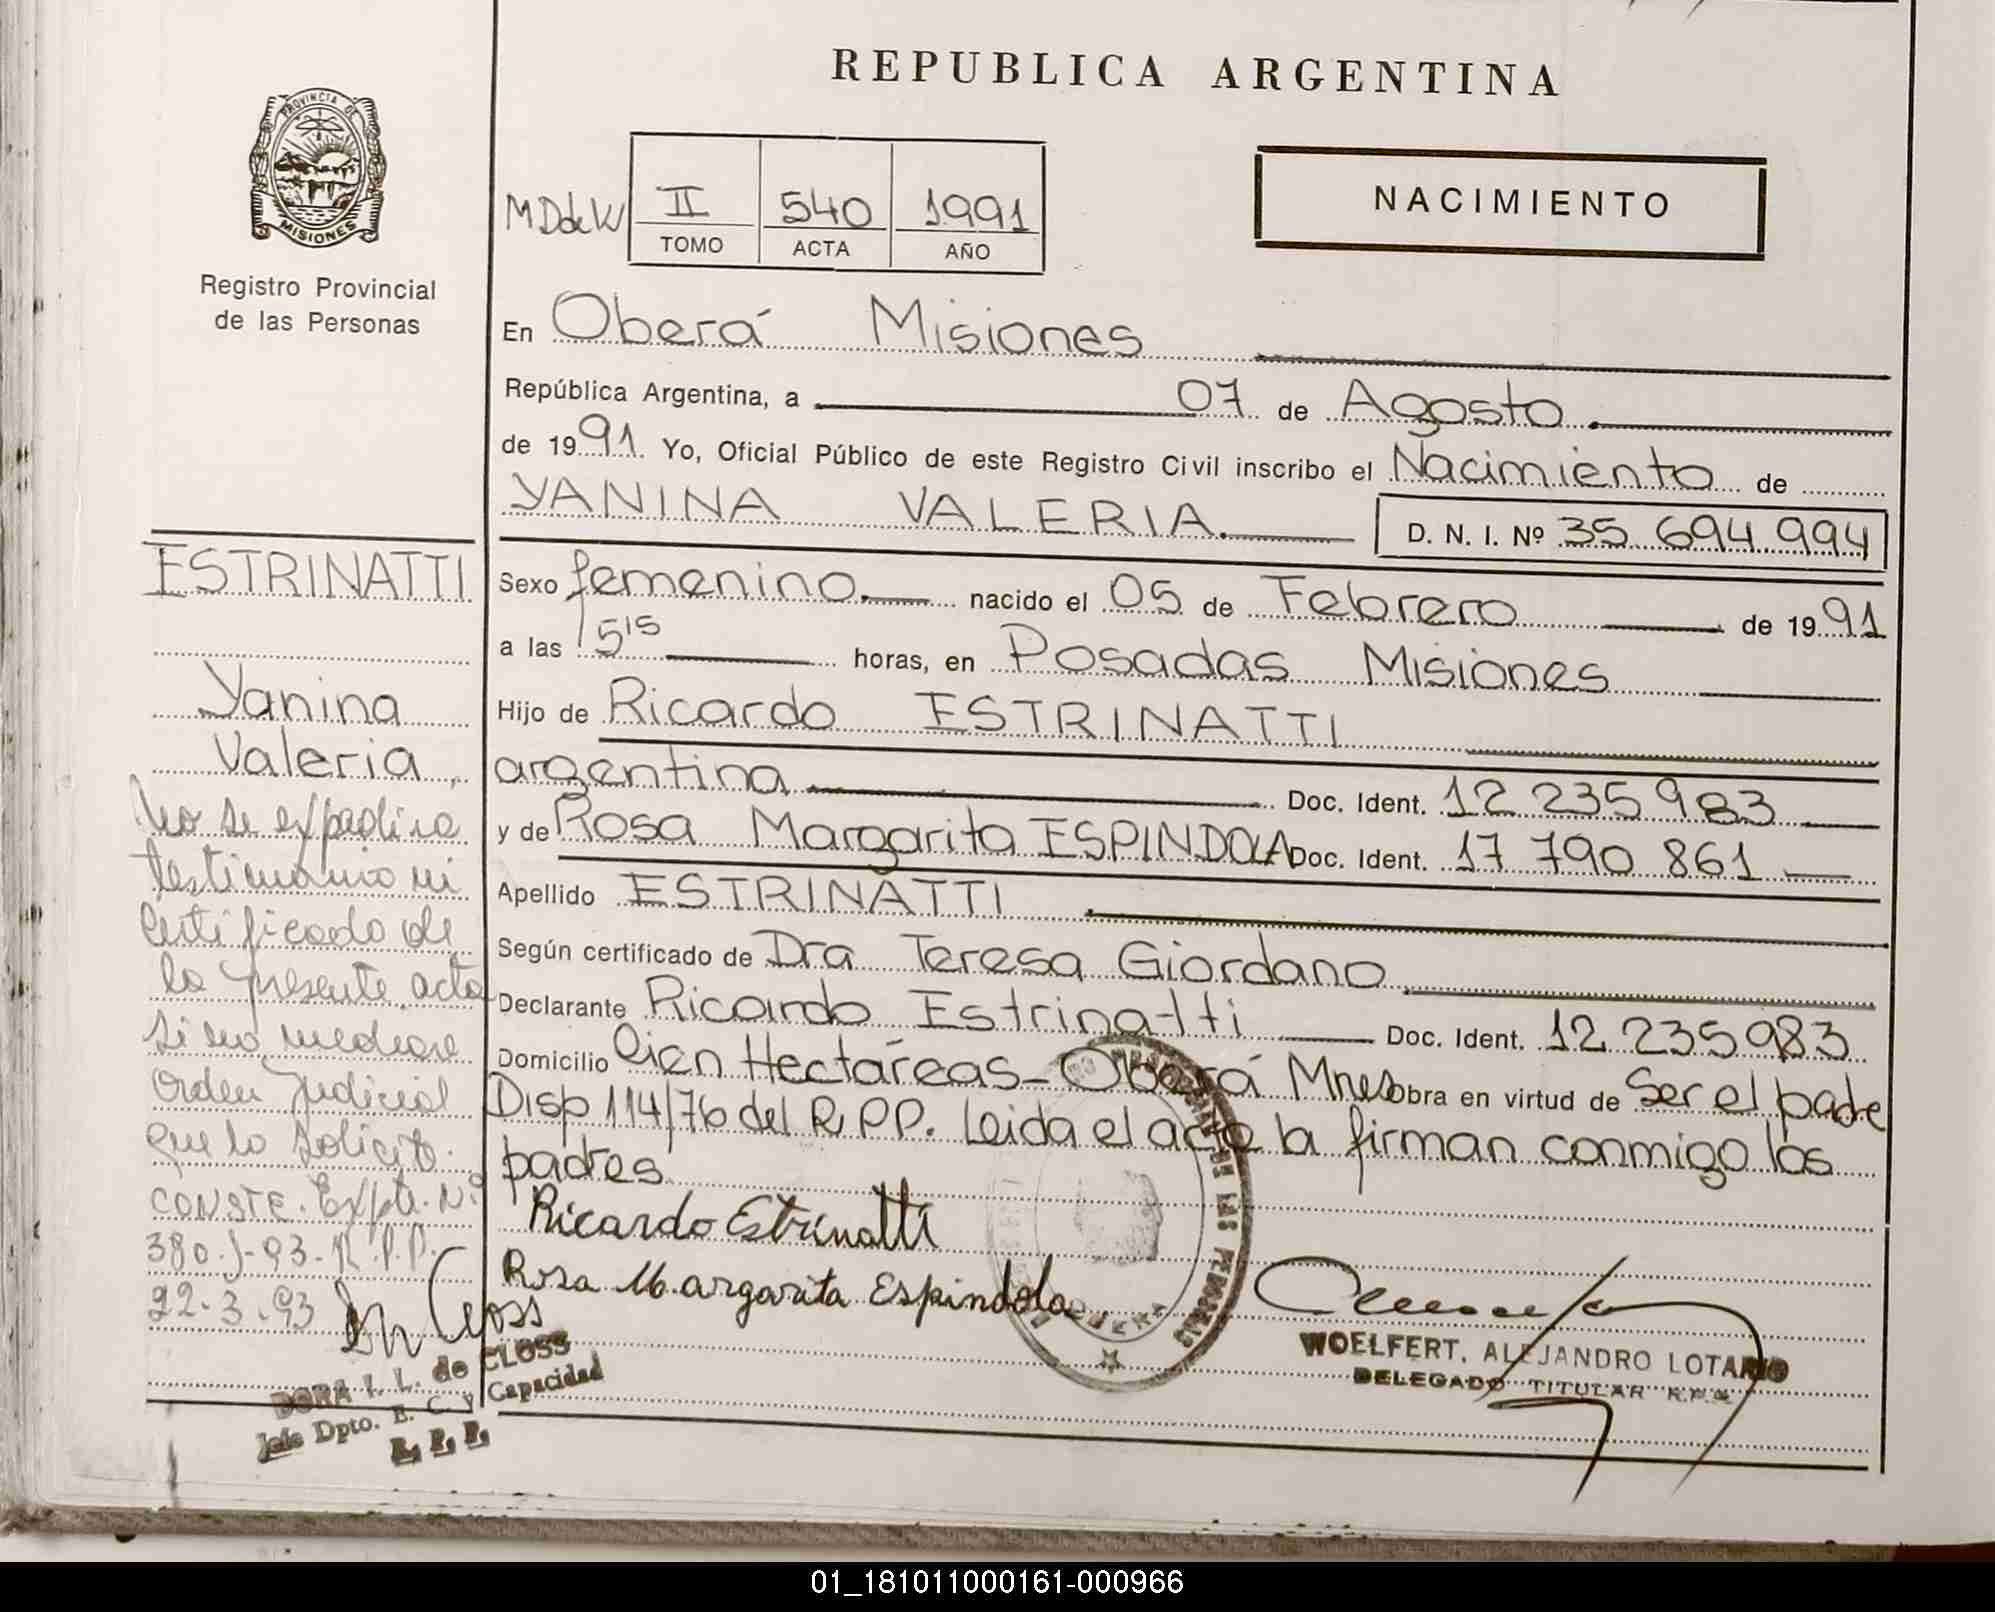 REPUBLICA ARGENTINA
PROVINCIA DE
MISIONES
Registro Provincial
de las Personas
MDdeW
II 540 1991
TOMO ACTA AÑO
NACIMIENTO
En Oberá Misiones
República Argentina, a 07 de Agosto
de 1991 Yo, Oficial Público de este Registro Civil inscribo el Nacimiento de
YANINA VALERIA D. N. I. Nº 35 694 994
Sexo femenino nacido el 05 de Febrero de 1991
a las 15 15 horas, en Posadas Misiones
Hijo de Ricardo ESTRINATTI
argentina Doc. Ident. 12 235 983
y de Rosa Margarita ESPINDOLA Doc. Ident. 17 790 861
Apellido ESTRINATTI
Según certificado de Dra Teresa Giordano
Declarante Ricardo Estrinatti Doc. Ident. 12 235 983
Domicilio Cien Hectáreas - Oberá Mnes obra en virtud de Ser el padre
Disp 114/76 del R.P.P. Leida el acta la firman conmigo los
padres
Ricardo Estrinatti
Rosa Margarita Espindola
WOELFERT, ALEJANDRO LOTARIO
DELEGADO TITULAR R.P.P.
ESTRINATTI
Yanina
Valeria
No se expedira
testimonio ni
certificado de
la presente acta
si no mediare
Orden Judicial
que lo solicite.
CONSTE. Expte. Nº
380-J-93-R.P.P.
22-3-93
DORA I. L. de CLOSS
Jefe Dpto. E. C. y Capacidad
R. P. P.
01_181011000161-000966